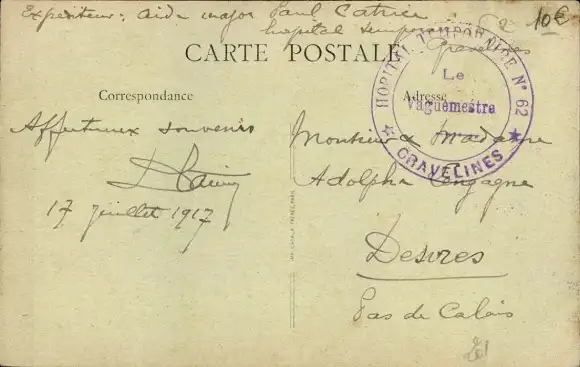 Expediteur: Aide major Paul Catrice
hopital temporaire 62
Gravelines
10€
CARTE POSTALE
HOPITAL TEMPORAIRE N° 62
Le
Vaguemestre
GRAVELINES
Correspondance
Adresse
Affectueux souvenir
17 juillet 1917
Monsieur & Madame
Adolphe
Desvres
Pas de Calais